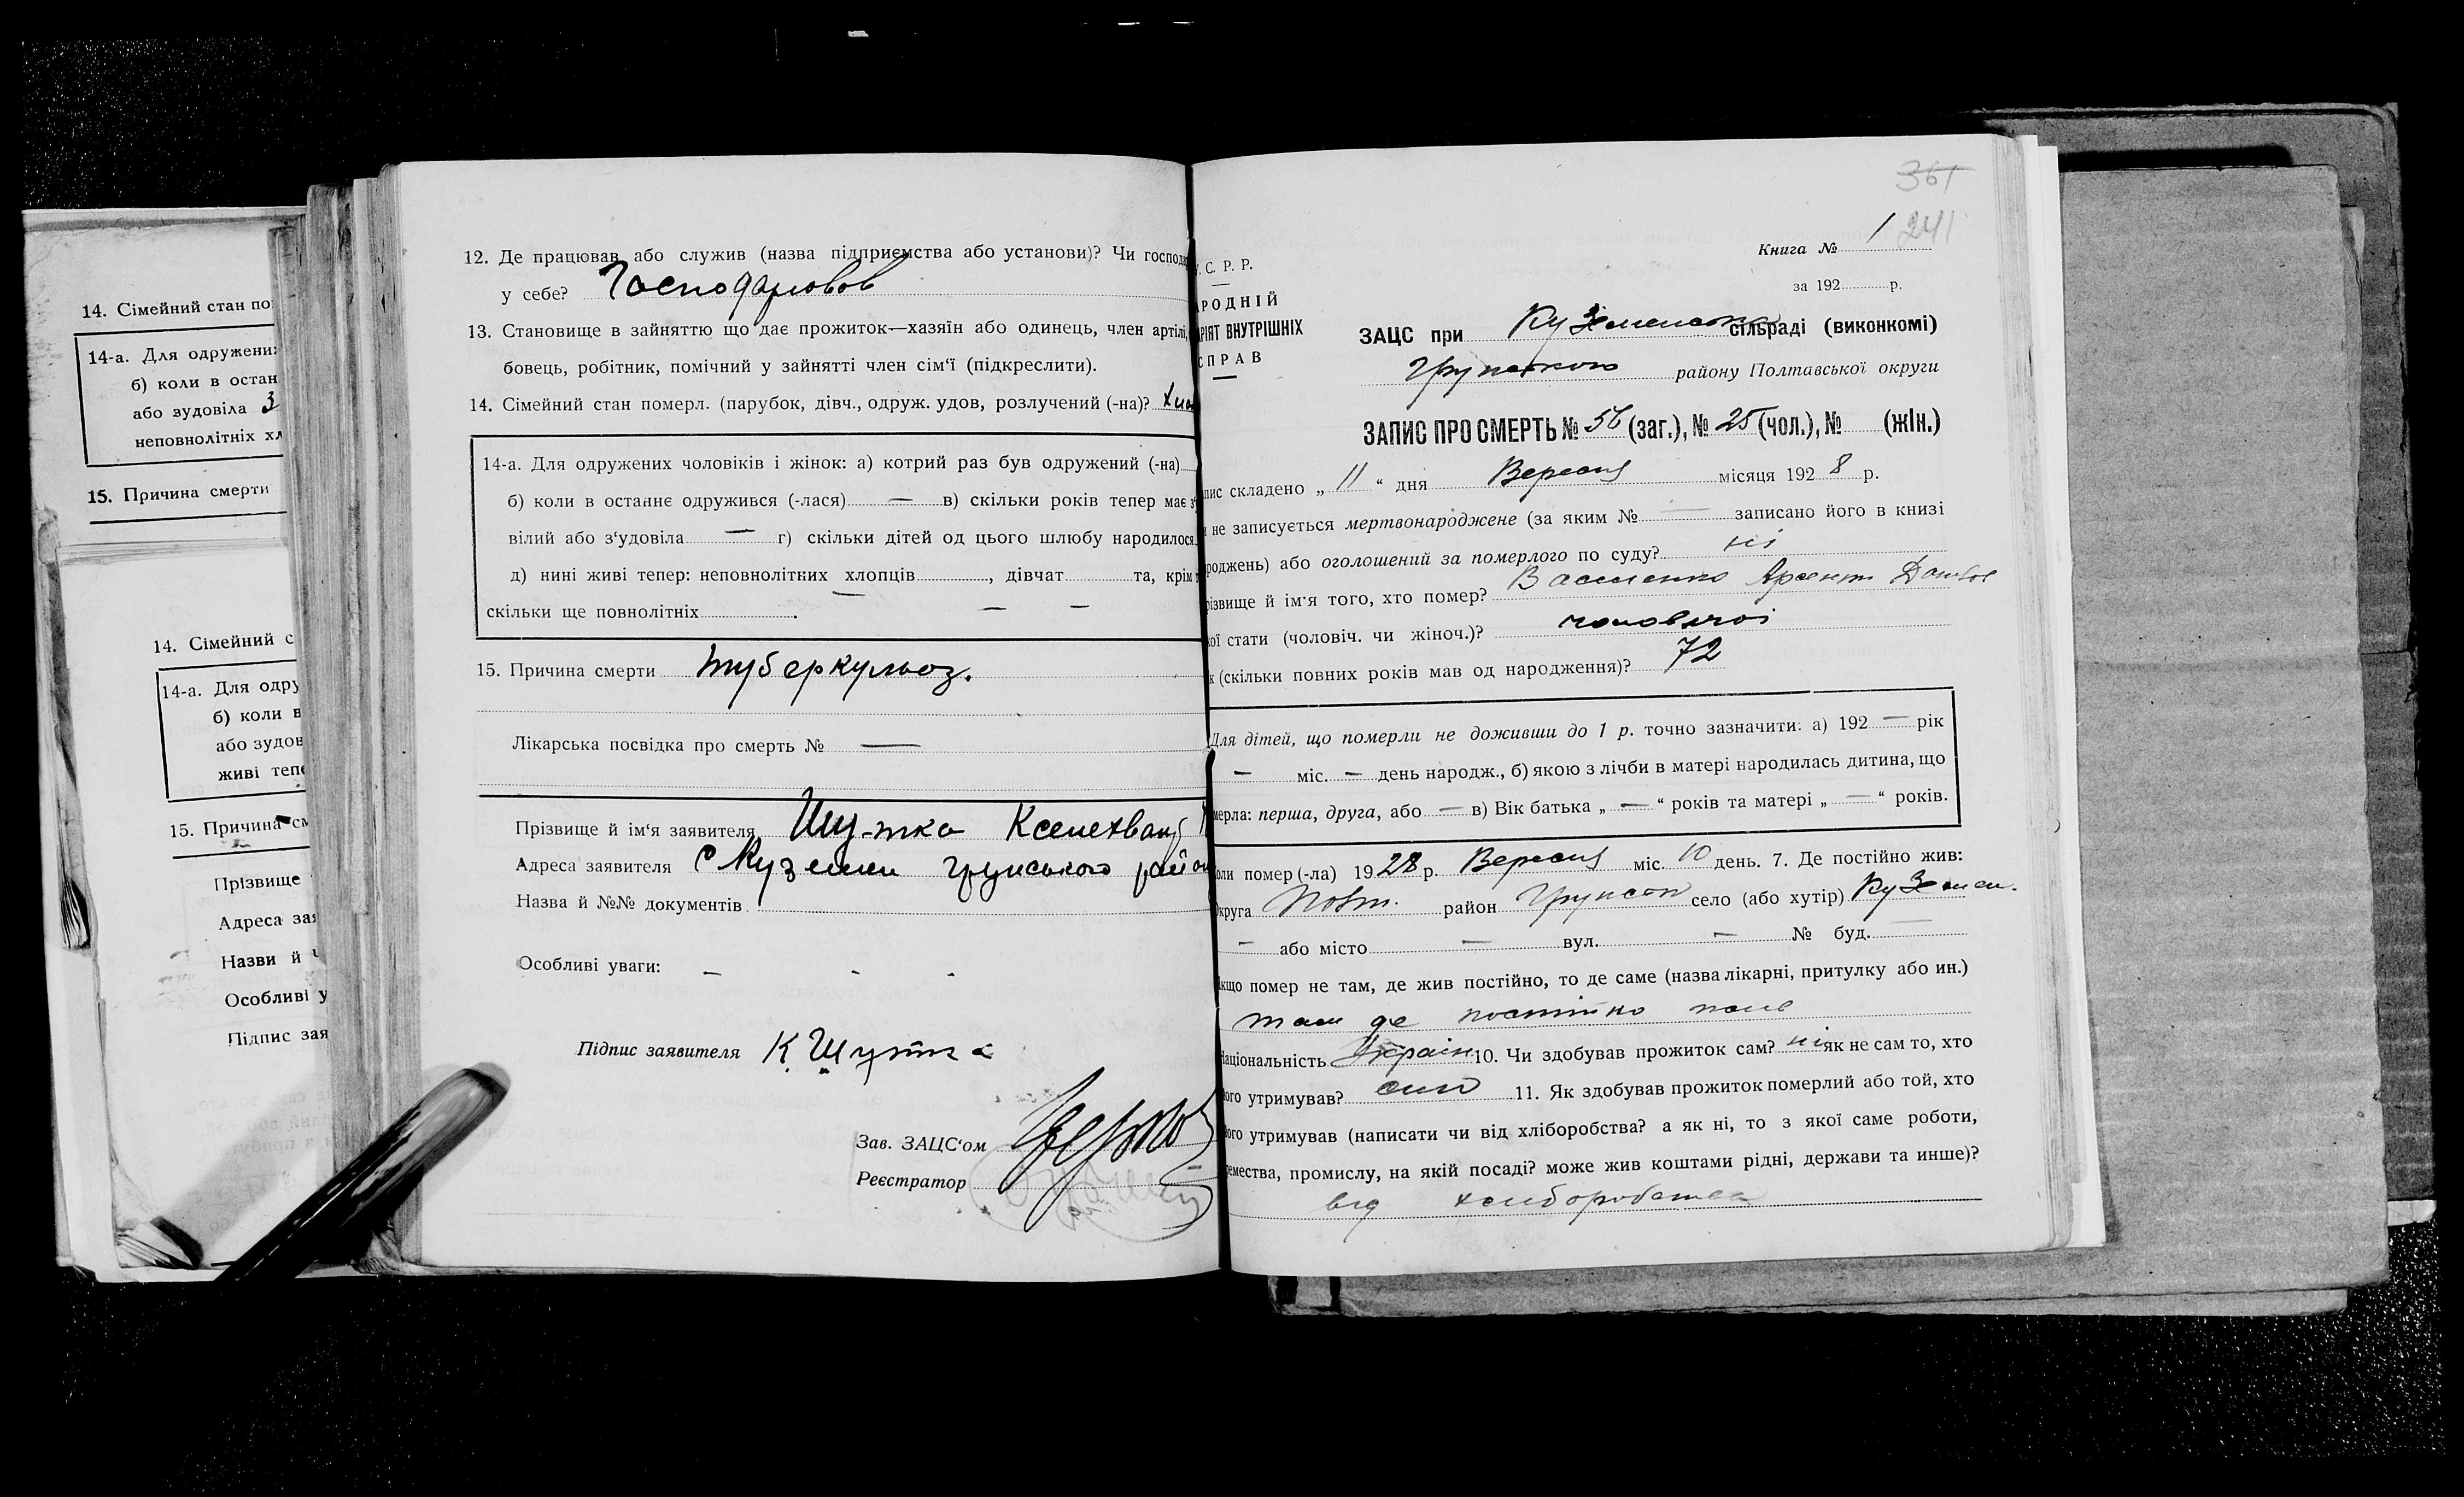 14. Сімейний стан по
14-а. Для одружених
б) коли в остан
або зудовіла 3
неповнолітніх хл
15. Причина смерти
14. Сімейний с
14-а. Для одру
б) коли в
або зудов
живі тепе
15. Причина см
Прізвище
Адреса зая
Назви й
Особливі у
Підпис зая
12. Де працював або служив (назва підприємства або установи)? Чи господа
у себе? Господарював
13. Становище в зайняттю що дає прожиток—хазяїн або одинець, член артілі,
бовець, робітник, помічний у зайнятті член сім‘ї (підкреслити).
14. Сімейний стан померл. (парубок, дівч., одруж. удов, розлучений (-на)?
14-а. Для одружених чоловіків і жінок: а) котрий раз був одружений (-на)
б) коли в останнє одружився (-лася) — в) скільки років тепер має з‘
вілий або з‘удовіла — г) скільки дітей од цього шлюбу народилося
д) нині живі тепер: неповнолітних хлопців — , дівчат — та, крім т
скільки ще повнолітніх — .
15. Причина смерти туберкульоз.
Лікарська посвідка про смерть № —
Прізвище й ім‘я заявителя Шутка
Адреса заявителя с Куземин грунського район
Назва й №№ документів
Особливі уваги: — - -
Підпис заявителя К Шутка
Зав. ЗАЦС‘ом
Реєстратор
361
241
Книга № 1
за 192 р.
У. С. Р. Р.
РОДНІЙ
АРІЯТ ВНУТРІШНІХ
СПРАВ
ЗАЦС при Куземенською сільраді (виконкомі)
Грунського району Полтавської округи
ЗАПИС ПРО СМЕРТЬ № 56 (заг.), № 25 (чол.), № (жін.)
пис складено „ 11 “ дня Вересня місяця 192 8 р.
и не записується мертвонароджене (за яким № — записано його в книзі
роджень) або оголошений за померлого по суду? ні
різвище й ім‘я того, хто помер? Василенко Арсент
кої стати (чоловіч. чи жіноч.)? чоловічої
к (скільки повних років мав од народження)? 72
Для дітей, що померли не доживши до 1 р. точно зазначити: а) 192 — рік
— міс. — день народж., б) якою з лічби в матері народилась дитина, що
мерла: перша, друга, або — в) Вік батька „ — “ років та матері „ — “ років.
оли помер (-ла) 19 28 р. Вересня міс. 10 день. 7. Де постійно жив:
круга Полт. район Грунськ село (або хутір) Куземен.
— або місто — вул. — № буд. —
кщо помер не там, де жив постійно, то де саме (назва лікарні, притулку або ин.)
там де постійно жив
Національність Україн 10. Чи здобував прожиток сам? ні як не сам то, хто
ого утримував? син 11. Як здобував прожиток померлий або той, хто
ого утримував (написати чи від хліборобства? а як ні, то з якої саме роботи,
емества, промислу, на якій посаді? може жив коштами рідні, держави та инше)?
від хліборобства